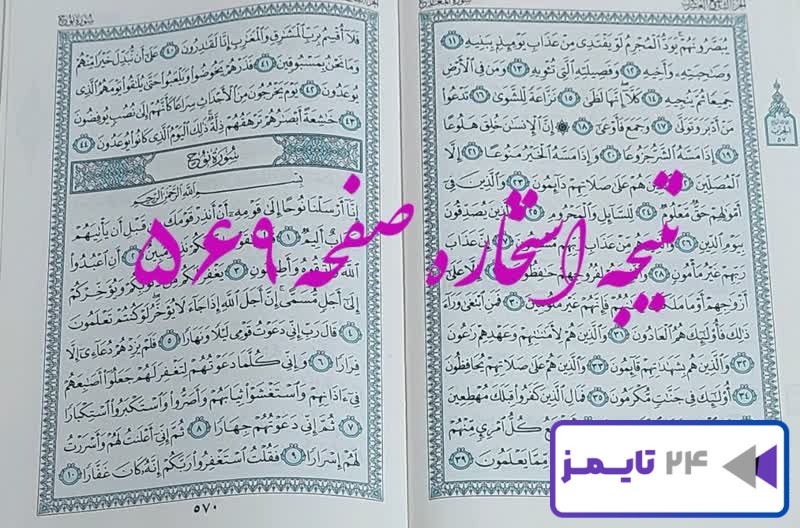 يُبَصَّرُونَهُمْ يَوَدُّ الْمُجْرِمُ لَوْ يَفْتَدِي مِنْ عَذَابِ يَوْمِئِذٍ بِبَنِيهِ ١١
وَصَٰحِبَتِهِ وَأَخِيهِ ١٢ وَفَصِيلَتِهِ الَّتِي تُـْٔوِيهِ ١٣ وَمَن فِي الْأَرْضِ
جَمِيعًا ثُمَّ يُنجِيهِ ١٤ كَلَّا إِنَّهَا لَظَىٰ ١٥ نَزَّاعَةً لِّلشَّوَىٰ ١٦ تَدْعُوا
مَنْ أَدْبَرَ وَتَوَلَّىٰ ١٧ وَجَمَعَ فَأَوْعَىٰ ١٨ إِنَّ الْإِنسَٰنَ خُلِقَ هَلُوعًا
١٩ إِذَا مَسَّهُ الشَّرُّ جَزُوعًا ٢٠ وَإِذَا مَسَّهُ الْخَيْرُ مَنُوعًا ٢١ إِلَّا
الْمُصَلِّينَ ٢٢ الَّذِينَ هُمْ عَلَىٰ صَلَاتِهِمْ دَآئِمُونَ ٢٣ وَالَّذِينَ فِي
أَمْوَٰلِهِمْ حَقٌّ مَّعْلُومٌ ٢٤ لِّلسَّآئِلِ وَالْمَحْرُومِ ٢٥ وَالَّذِينَ يُصَدِّقُونَ
بِيَوْمِ الدِّينِ ٢٦ وَالَّذِينَ هُم مِّنْ عَذَابِ رَبِّهِم ٢٧ إِنَّ عَذَابَ
رَبِّهِمْ غَيْرُ مَأْمُونٍ ٢٨ وَالَّذِينَ هُمْ لِفُرُوجِهِمْ حَٰفِظُونَ ٢٩ إِلَّا عَلَىٰ
أَزْوَٰجِهِمْ أَوْ مَا مَلَكَتْ فَإِنَّهُمْ غَيْرُ مَلُومِينَ ٣٠ فَمَنِ ابْتَغَىٰ وَرَآءَ
ذَٰلِكَ فَأُو۟لَٰٓئِكَ هُمُ الْعَادُونَ ٣١ وَالَّذِينَ هُمْ لِأَمَٰنَٰتِهِمْ وَعَهْدِهِمْ رَٰعُونَ
٣٢ وَالَّذِينَ هُم بِشَهَٰدَٰتِهِمْ قَآئِمُونَ ٣٣ وَالَّذِينَ هُمْ عَلَىٰ صَلَاتِهِمْ يُحَافِظُونَ
٣٤ أُو۟لَٰٓئِكَ فِي جَنَّٰتٍ مُّكْرَمُونَ ٣٥ فَمَالِ الَّذِينَ كَفَرُوا قِبَلَكَ مُهْطِعِينَ
كُلُّ امْرِئٍ مِّنْهُمْ
مِّمَّا يَعْلَمُونَ ٣٩
فَلَآ أُقْسِمُ بِرَبِّ الْمَشَٰرِقِ وَالْمَغَٰرِبِ إِنَّا لَقَٰدِرُونَ ٤٠ عَلَىٰٓ أَن نُّبَدِّلَ خَيْرًا مِّنْهُمْ
وَمَا نَحْنُ بِمَسْبُوقِينَ ٤١ فَذَرْهُمْ يَخُوضُوا وَيَلْعَبُوا حَتَّىٰ يُلَٰقُوا يَوْمَهُمُ الَّذِي
يُوعَدُونَ ٤٢ يَوْمَ يَخْرُجُونَ مِنَ الْأَجْدَاثِ سِرَاعًا كَأَنَّهُمْ إِلَىٰ نُصُبٍ يُوفِضُونَ
٤٣ خَٰشِعَةً أَبْصَٰرُهُمْ تَرْهَقُهُمْ ذِلَّةٌ ذَٰلِكَ الْيَوْمُ الَّذِي كَانُوا يُوعَدُونَ ٤٤
سُورَةُ نُوحٍ
بِسْمِ اللَّهِ الرَّحْمَٰنِ الرَّحِيمِ
إِنَّآ أَرْسَلْنَا نُوحًا إِلَىٰ قَوْمِهِ أَنْ أَنذِرْ قَوْمَكَ مِن قَبْلِ أَن يَأْتِيَهُمْ
عَذَابٌ أَلِيمٌ ١ مُّبِينٌ ٢ أَنِ اعْبُدُوا
اللَّهَ وَاتَّقُوهُ وَأَطِيعُونِ ٣ يَغْفِرْ لَكُم مِّن ذُنُوبِكُمْ وَيُؤَخِّرْكُمْ
إِلَىٰٓ أَجَلٍ مُّسَمًّى إِنَّ أَجَلَ اللَّهِ إِذَا جَآءَ لَا يُؤَخَّرُ لَوْ كُنتُمْ تَعْلَمُونَ
٤ قَالَ رَبِّ إِنِّي دَعَوْتُ قَوْمِي لَيْلًا وَنَهَارًا ٥ فَلَمْ يَزِدْهُمْ دُعَآءِيٓ إِلَّا
فِرَارًا ٦ وَإِنِّي كُلَّمَا دَعَوْتُهُمْ لِتَغْفِرَ لَهُمْ جَعَلُوٓا أَصَٰبِعَهُمْ
فِيٓ ءَاذَانِهِمْ وَاسْتَغْشَوْا ثِيَابَهُمْ وَأَصَرُّوا وَاسْتَكْبَرُوا اسْتِكْبَارًا
٧ ثُمَّ إِنِّي دَعَوْتُهُمْ جِهَارًا ٨ ثُمَّ إِنِّيٓ أَعْلَنتُ لَهُمْ وَأَسْرَرْتُ
لَهُمْ إِسْرَارًا ٩ فَقُلْتُ اسْتَغْفِرُوا رَبَّكُمْ إِنَّهُ كَانَ غَفَّارًا ١٠
٥٧٠
نتیجه استخاره صفحه ۵۶۹
۲۴ تایمز